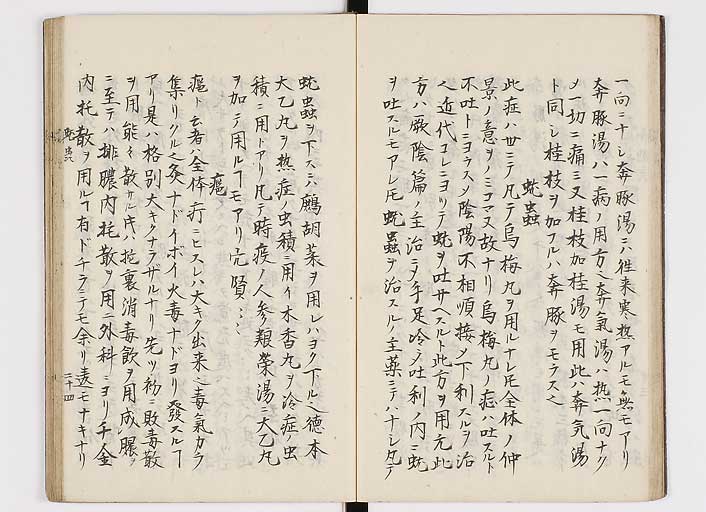 一向ニナシ奔豚湯ニハ徃来寒熱アルモ無モアリ
奔豚湯ハ一病ノ用方也奔氣湯ハ热一向ナク
〆一切ニ痛ミ又桂枝加桂湯モ用此ハ奔気湯
ト同シ桂枝ヲ加フルハ奔豚ヲモラス也
蚘蟲
此症ハ世ニテ凡テ烏梅丸ヲ用ルナレ𪜈全体ノ仲
景ノ意ヲノミコマヌ故ナリ烏梅丸ノ症ハ吐スルト
不吐トニヨラス〆陰陽不相順接〆下利スルヲ治
也近代コレニヨリテ蚘ヲ吐サヘスルト此方ヲ用尤此
方ハ厥陰篇ノ主治ニ〆手足冷ノ吐利ノ内ニ蚘
ヲ吐スルモアレ𪜈蚘蟲ヲ治スルノ主薬ニテハナシ凡テ
蚘蟲ヲ下スニハ鷓胡菜ヲ用レハヨク下ル也徳本
大乙丸ヲ热症ノ虫積ニ用イ木香丸ヲ冷症ノ虫
積ニ用トアリ凡テ時疫ノ人参類榮湯ニ大乙丸
ヲ加テ用ルヿモアリ亢賢
癰
癰ト云者ハ全体疔ニヒスレハ大キク出来也毒氣カラ
集リクル也灸ナドイボイ火毒ナドヨリ發スルヿ
アリ是ハ格別大キクナラザルナリ先ツ初敗毒散
ヲ用能々散サル𪜈ハ托裏消毒飲ヲ用成膿ヲ
ニ至テハ排膿内托散ヲ用ニ外科ニヨリ千金
内托散ヲ用ルヿ有ドチラニテモ余リ違モナキナリ
蚘蟲
二十四